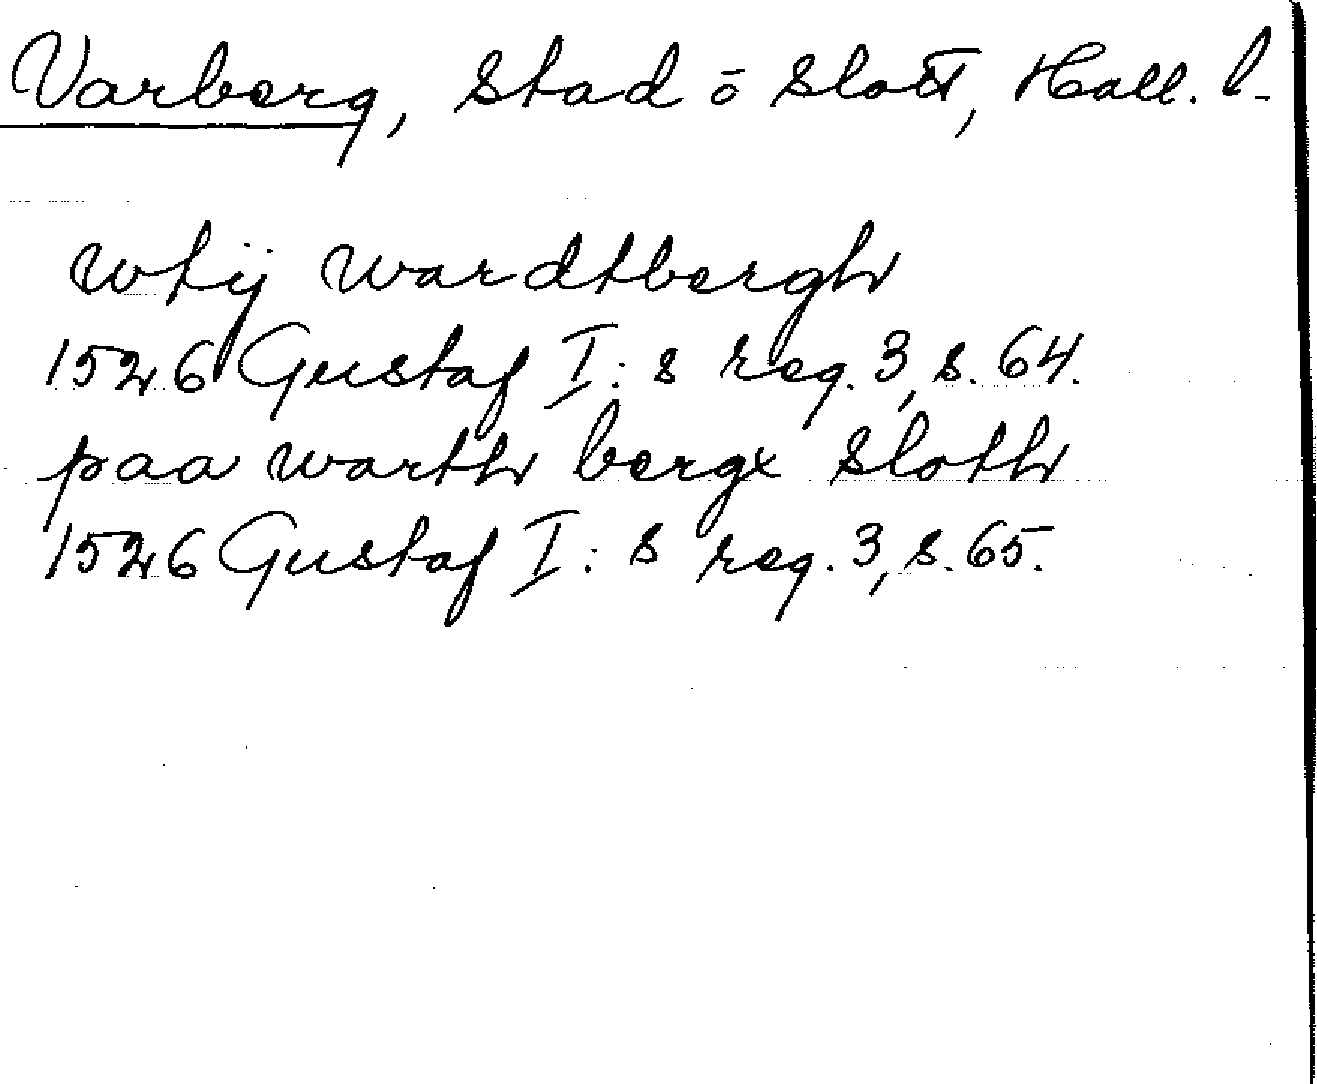 Varberg, stad o slott, Hall. l.
wtij wardtbergh
1526 Gustaf I:s reg. 3, s. 64.
paa warth bergx sloth
1526 Gustaf I:s reg. 3, s. 65.